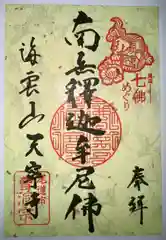 七佛
めぐり
奉拝
南無釋迦牟尼佛
海雲山天寧寺